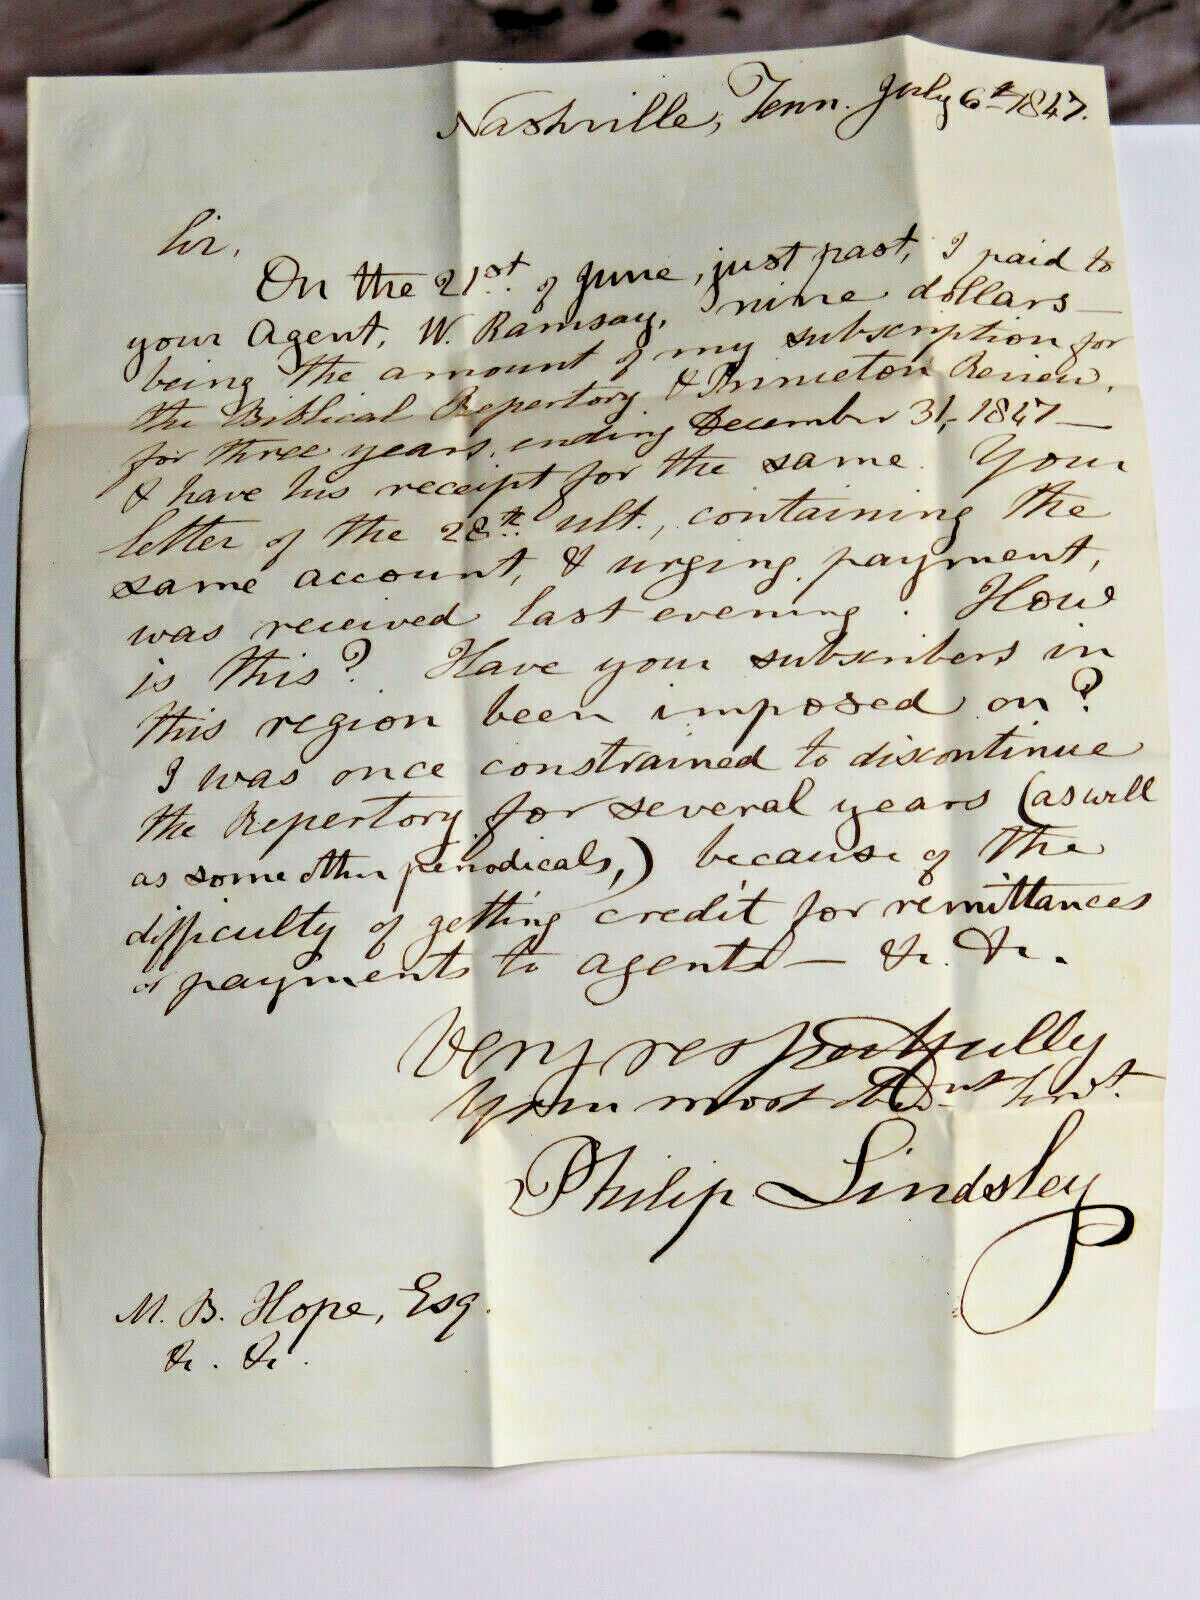 Nashville, Tenn. July 6th 1847.
Sir,
On the 21st. of June, just past, I paid to
your Agent, W. Ramsay, nine dollars —
being the amount of my subscription for
the Biblical Repertory & Princeton Review,
for three years, ending December 31, 1847 —
& have his receipt for the same. Your
letter of the 28th. ult., containing the
same account, & urging payment,
was received last evening. How
is this? Have your subscribers in
this region been imposed on?
I was once constrained to discontinue
the Repertory for several years (as well
as some other periodicals,) because of the
difficulty of getting credit for remittances
or payments to agents — &c. &c.
Very respectfully
Your most obdnt servt.
Philip Lindsley
M. B. Hope, Esq.
&c. &c.